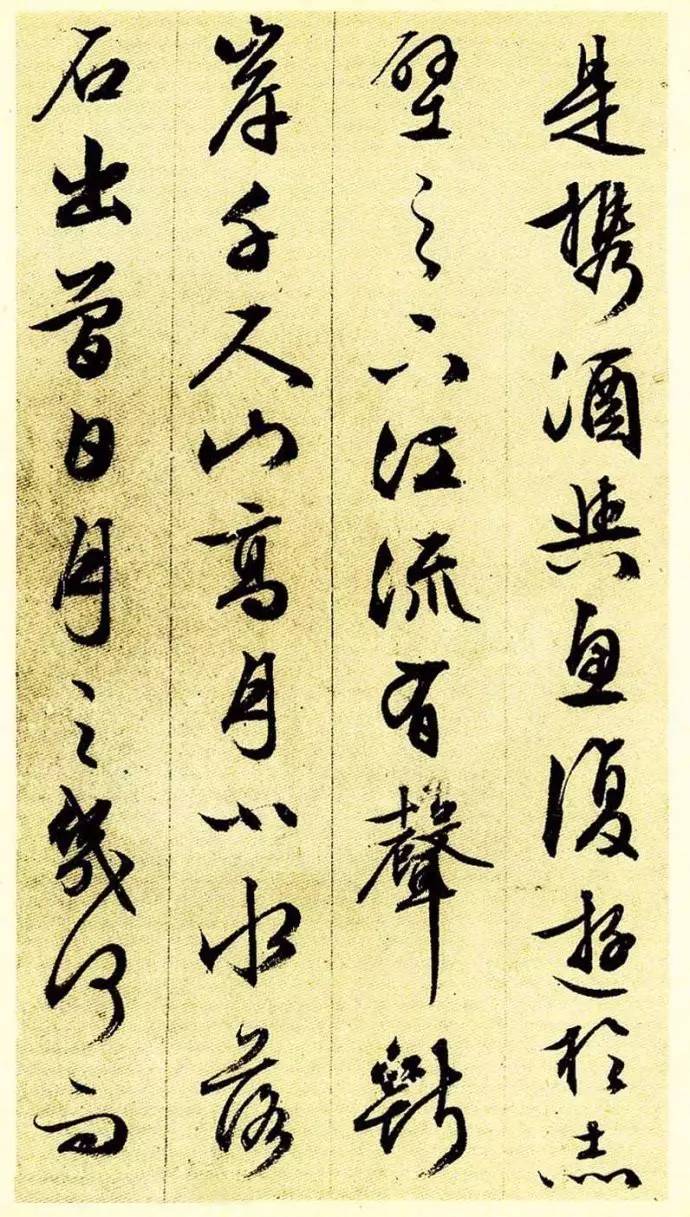 是攜酒與魚復遊於赤
壁之下江流有聲斷
岸千尺山高月小水落
石出曾日月之幾何而